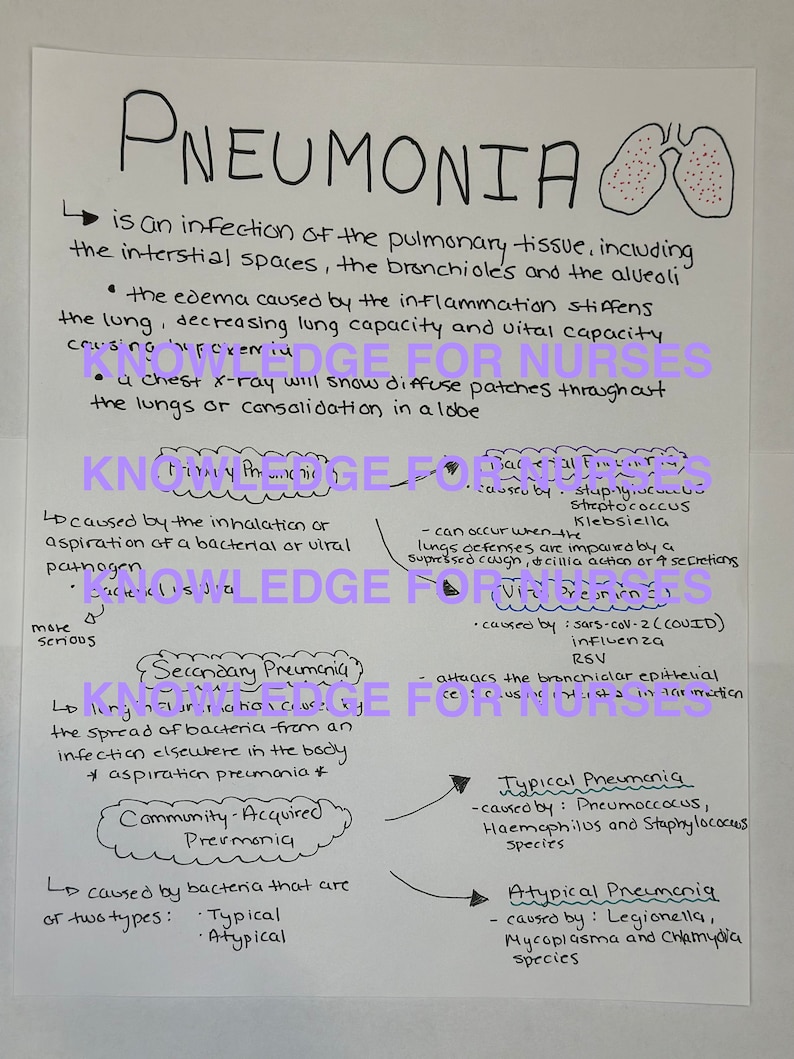 PNEUMONIA
is an infection of the pulmonary tissue, including
the interstial spaces, the bronchioles and the alveoli
• the edema caused by the inflammation stiffens
the lung, decreasing lung capacity and vital capacity
causing hypoxemia
KNOWLEDGE FOR NURSES
• a chest x-ray will show diffuse patches throughout
the lungs or consolidation in a lobe
Primary Pneumonia
KNOWLEDGE FOR NURSES
↳ caused by the inhalation or
aspiration of a bacterial or viral
pathogen
• Bacterial vs viral
KNOWLEDGE FOR NURSES
more
serious
Bacterial Pneumonia
• caused by : staphylococcus
streptococcus
Klebsiella
- can occur when the
lungs defenses are impaired by a
supressed cough, ↓ cillia action or ↑ secretions
Viral Pneumonia
• caused by : sars-coV-2 (COVID)
influenza
RSV
- attacks the bronchiolar epithelial
cells causing interstitial inflammation
Secondary Pneumonia
KNOWLEDGE FOR NURSES
↳ lung inflammation caused by
the spread of bacteria from an
infection elsewhere in the body
* aspiration pneumonia *
Community-Acquired
Pneumonia
↳ caused by bacteria that are
of two types : • Typical
• Atypical
Typical Pneumonia
- caused by : Pneumoccocus,
Haemophilus and Staphylococcus
species
Atypical Pneumonia
- caused by : Legionella,
Mycoplasma and Chlamydia
species